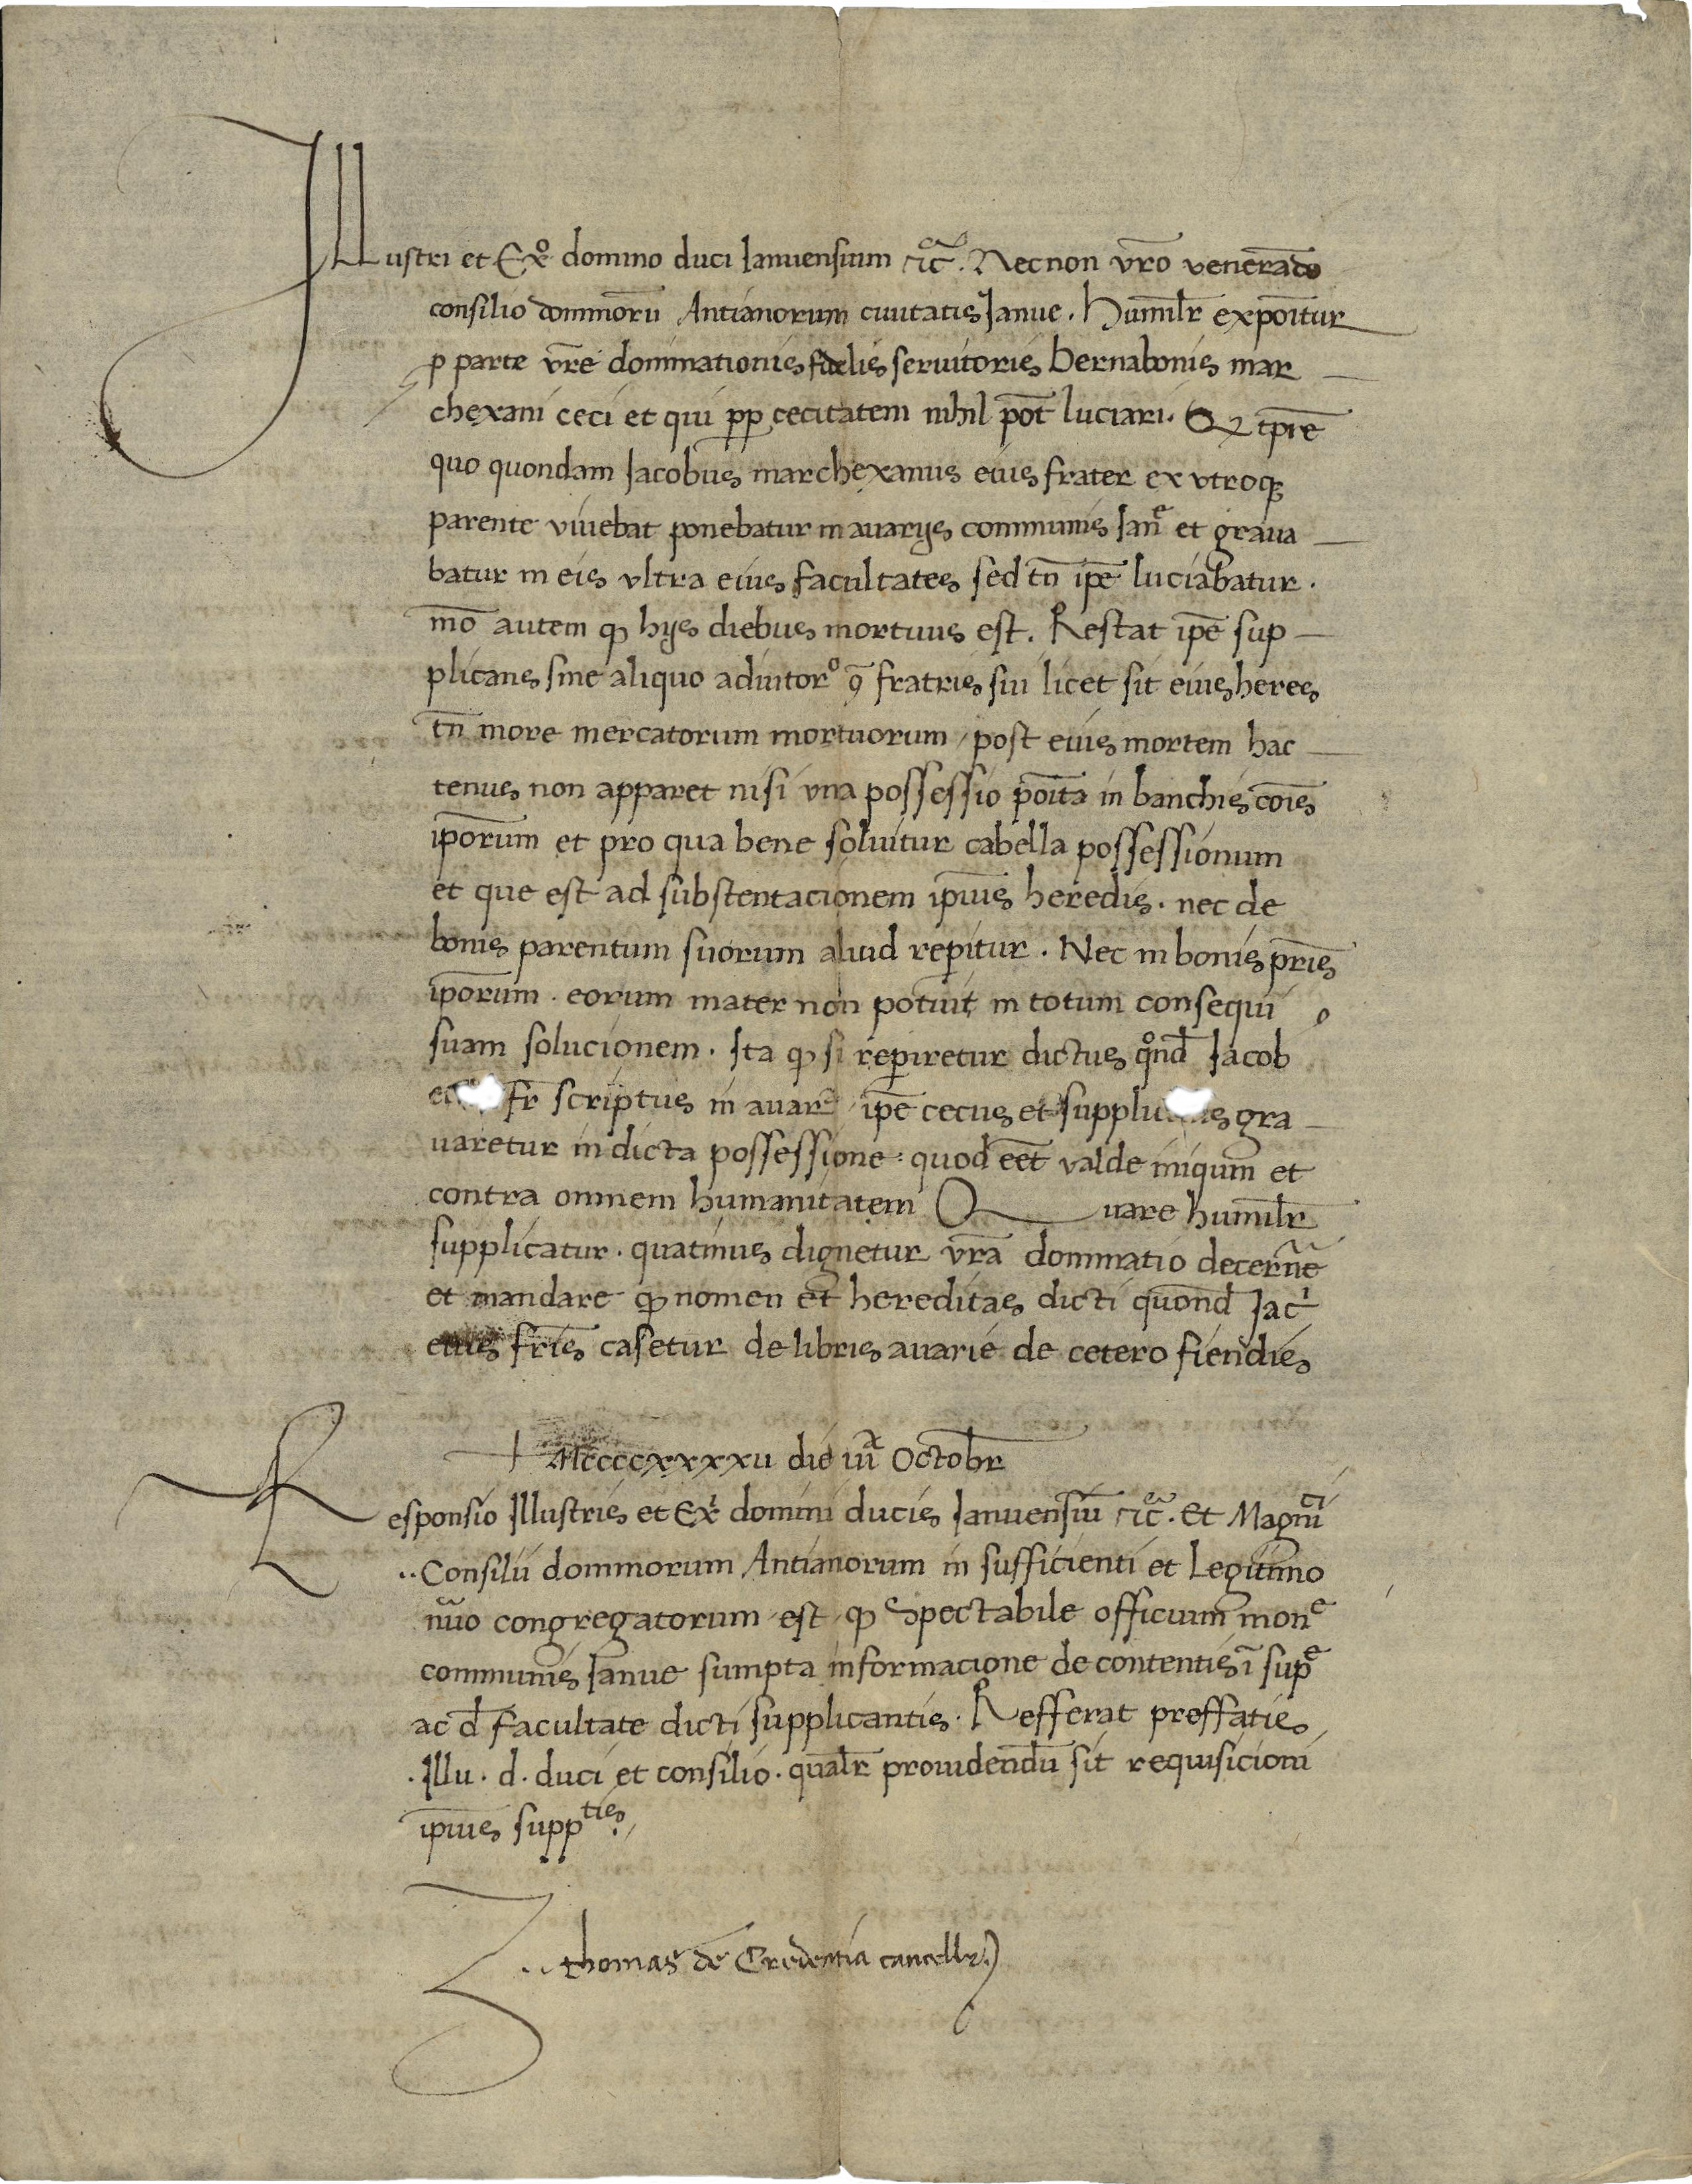 Illustri et Ex͞o domino duci Januensium ⁊c͞. Necnon vr͞o venera͞do
consilio domino͞ru Antianorum civitatis Janue. Humil͞r expo͞itur
ꝑ parte vr͞e dominationis fidelis servitoris Bernabonis mar –
chexani ceci et qui ꝓꝑ cecitatem nihil po͞t luciari. Qꝫ tp͞re
quo quondam Jacobus marchexanus eius frater ex utroqꝫ
parente vivebat ponebatur in avarijs communis Jan͞e et grava –
batur in eis ultra eius facultates sed tn͞ ip͞e luciabatur.
mo͞ autem ꝙ hijs diebus mortuus est. Restat ip͞e sup –
plicans sine aliquo adiutorᵒ ꝙ͞ fratris sui licet sit eius heres
tn͞ more mercatorum mortuorum / post eius mortem hac –
tenus non apparet nisi una possessio po͞ita in banchis co͞is
ip͞orum et pro qua bene solvitur cabella possessionum
et que est ad substentacionem ip͞ius heredis. nec de
bonis parentum suorum aliud rep͞itur. Nec in bonis pr͞is
ip͞orum. eorum mater non potuit in totum consequi
suam solucionem. Ita ꝙ si rep͞iretur dictus qo͞nd Jacob
fr͞ scriptus in avar͞ ip͞e cecus et gra –
varetur in dicta possessione: quod ee͞t valde iniqum et
contra omnem humanitatem Quare humil͞r
supplicatur. quatinus dignetur vr͞a dominatio decern͞e
et mandare ꝙ nomen et hereditas dicti quo͞nd Jacⁱ
eius fr͞is casetur de libris avarie de cetero fiendis
+ Mccccxxxxvii die iii͞ Octob͞r
Responsio Illustris et Exⁱ domini ducis Januensiu͞ ⁊c͞. Et Magniᶜⁱ
.. Consilii dominorum Antianorum in sufficienti et Legitimo
nu͞o congregatorum est ꝙ Spectabile officium monᵉ
communis Janue sumpta informacione de contentis i͞ supᵉ
ac d͞ facultate dicti supplicantis. Refferat preffatis
. Illu. d. duci et consilio. qual͞r providendu͞ sit requisicioni
ip͞ius suppᵗⁱˢ./
.. Thomas de Credentia cancellr͞